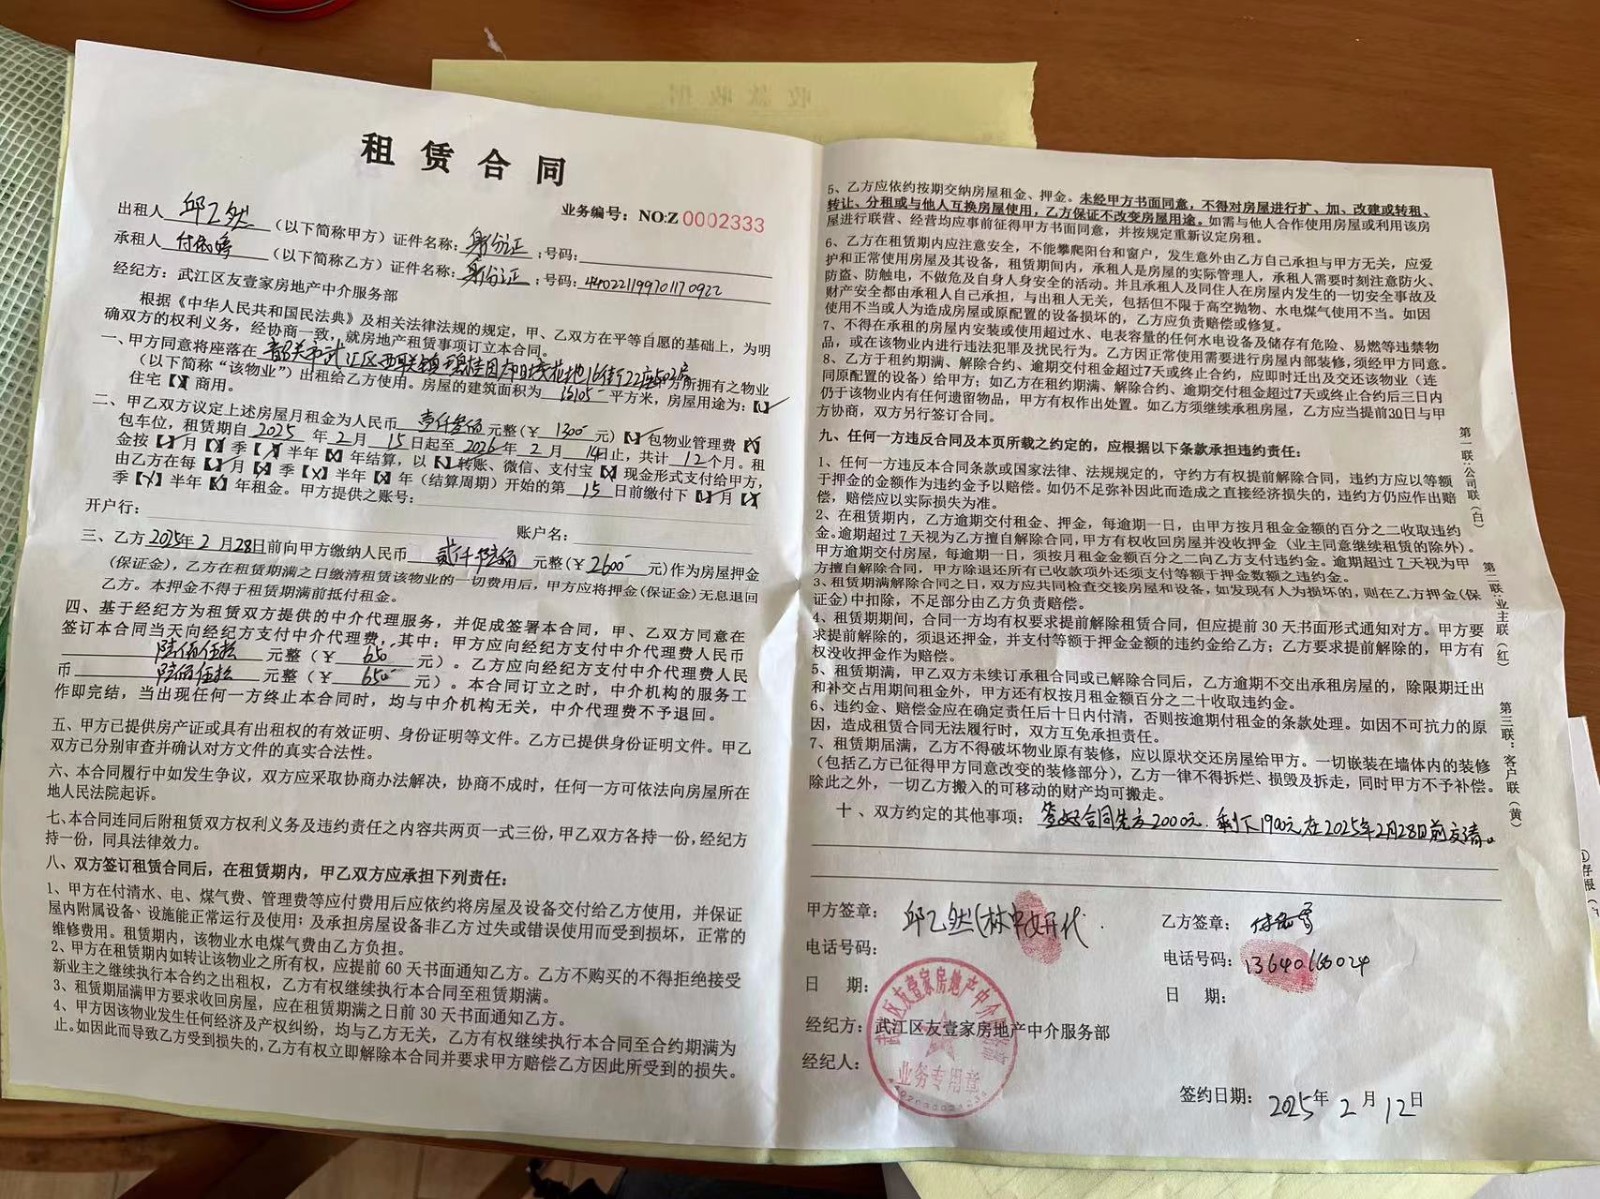 收款收据
租赁合同
业务编号：NO:Z 0002333
出租人 邱乙然 （以下简称甲方）证件名称：身份证；号码：
承租人 （以下简称乙方）证件名称：身份证；号码：440221199701170922
经纪方：武江区友壹家房地产中介服务部
根据《中华人民共和国民法典》及相关法律法规的规定，甲、乙双方在平等自愿的基础上，为明
确双方的权利义务，经协商一致，就房地产租赁事项订立本合同。
一、甲方同意将座落在 韶关市武江区西联镇碧桂园太阳城花地16街22座502房 方所拥有之物业
（以下简称“该物业”）出租给乙方使用。房屋的建筑面积为 平方米，房屋用途为：【✓】
住宅【 】商用。
二、甲乙双方议定上述房屋月租金为人民币 壹仟叁佰 元整（¥ 1300 元）【 】包物业管理费【 】
包车位，租赁期自 2025 年 2 月 15 日起至 2026 年 2 月 14 日止，共计 12 个月。租
金按【 】月【 】季【 】半年【 】年结算，以【 】转账、微信、支付宝【 】现金形式支付给甲方，
由乙方在每【 】月【 】季【 】半年【 】年（结算周期）开始的第 15 日前缴付下【 】月【 】
季【 】半年【 】年租金。甲方提供之账号：
开户行： 账户名：
三、乙方 2025年2月28日前向甲方缴纳人民币 贰仟陆佰 元整（¥ 2600 元）作为房屋押金
（保证金），乙方在租赁期满之日缴清租赁该物业的一切费用后，甲方应将押金（保证金）无息退回
乙方。本押金不得于租赁期满前抵付租金。
四、基于经纪方为租赁双方提供的中介代理服务，并促成签署本合同，甲、乙双方同意在
签订本合同当天向经纪方支付中介代理费，其中：甲方应向经纪方支付中介代理费人民币
陆佰伍拾 元整（¥ 650 元）。乙方应向经纪方支付中介代理费人民
币 陆佰伍拾 元整（¥ 650 元）。本合同订立之时，中介机构的服务工
作即完结，当出现任何一方终止本合同时，均与中介机构无关，中介代理费不予退回。
五、甲方已提供房产证或具有出租权的有效证明、身份证明等文件。乙方已提供身份证明文件。甲乙
双方已分别审查并确认对方文件的真实合法性。
六、本合同履行中如发生争议，双方应采取协商办法解决，协商不成时，任何一方可依法向房屋所在
地人民法院起诉。
七、本合同连同后附租赁双方权利义务及违约责任之内容共两页一式三份，甲乙双方各持一份，经纪方
持一份，同具法律效力。
八、双方签订租赁合同后，在租赁期内，甲乙双方应承担下列责任：
1、甲方在付清水、电、煤气费、管理费等应付费用后应依约将房屋及设备交付给乙方使用，并保证
屋内附属设备、设施能正常运行及使用；及承担房屋设备非乙方过失或错误使用而受到损坏，正常的
维修费用。租赁期内，该物业水电煤气费由乙方负担。
2、甲方在租赁期内如转让该物业之所有权，应提前 60 天书面通知乙方。乙方不购买的不得拒绝接受
新业主之继续执行本合约之出租权，乙方有权继续执行本合同至租赁期满。
3、租赁期届满甲方要求收回房屋，应在租赁期满之日前 30 天书面通知乙方。
4、甲方因该物业发生任何经济及产权纠纷，均与乙方无关，乙方有权继续执行本合同至合约期满为
止。如因此而导致乙方受到损失的，乙方有权立即解除本合同并要求甲方赔偿乙方因此所受到的损失。
5、乙方应依约按期交纳房屋租金、押金。未经甲方书面同意，不得对房屋进行扩、加、改建或转租、
转让、分租或与他人互换房屋使用，乙方保证不改变房屋用途。如需与他人合作使用房屋或利用该房
屋进行联营、经营均应事前征得甲方书面同意，并按规定重新议定房租。
6、乙方在租赁期内应注意安全，不能攀爬阳台和窗户，发生意外由乙方自己承担与甲方无关，应爱
护和正常使用房屋及其设备，租赁期间内，承租人是房屋的实际管理人，承租人需要时刻注意防火、
防盗、防触电，不做危及自身人身安全的活动。并且承租人及同住人在房屋内发生的一切安全事故及
财产安全都由承租人自己承担，与出租人无关，包括但不限于高空抛物、水电煤气使用不当。如因
使用不当或人为造成房屋或原配置的设备损坏的，乙方应负责赔偿或修复。
7、不得在承租的房屋内安装或使用超过水、电表容量的任何水电设备及储存有危险、易燃等违禁物
品，或在该物业内进行违法犯罪及扰民行为。乙方因正常使用需要进行房屋内部装修，须经甲方同意。
8、乙方于租约期满、解除合约、逾期交付租金超过7天或终止合约，应即时迁出及交还该物业（连
同原配置的设备）给甲方；如乙方在租约期满、解除合约、逾期交付租金超过7天或终止合约后三日内
仍于该物业内有任何遗留物品，甲方有权作出处置。如乙方须继续承租房屋，乙方应当提前30日与甲
方协商，双方另行签订合同。
九、任何一方违反合同及本页所载之约定的，应根据以下条款承担违约责任：
1、任何一方违反本合同条款或国家法律、法规规定的，守约方有权提前解除合同，违约方应以等额
于押金的金额作为违约金予以赔偿。如仍不足弥补因此而造成之直接经济损失的，违约方仍应作出赔
偿，赔偿应以实际损失为准。
2、在租赁期内，乙方逾期交付租金、押金，每逾期一日，由甲方按月租金金额的百分之二收取违约
金。逾期超过 7 天视为乙方擅自解除合同，甲方有权收回房屋并没收押金（业主同意继续租赁的除外）。
甲方逾期交付房屋，每逾期一日，须按月租金金额百分之二向乙方支付违约金。逾期超过 7 天视为甲
方擅自解除合同，甲方除退还所有已收款项外还须支付等额于押金数额之违约金。
3、租赁期满解除合同之日，双方应共同检查交接房屋和设备，如发现有人为损坏的，则在乙方押金（保
证金）中扣除，不足部分由乙方负责赔偿。
4、租赁期期间，合同一方均有权要求提前解除租赁合同，但应提前 30 天书面形式通知对方。甲方要
求提前解除的，须退还押金，并支付等额于押金金额的违约金给乙方；乙方要求提前解除的，甲方有
权没收押金作为赔偿。
5、租赁期满，甲乙双方未续订承租合同或已解除合同后，乙方逾期不交出承租房屋的，除限期迁出
和补交占用期间租金外，甲方还有权按月租金额百分之二十收取违约金。
6、违约金、赔偿金应在确定责任后十日内付清，否则按逾期付租金的条款处理。如因不可抗力的原
因，造成租赁合同无法履行时，双方互免承担责任。
7、租赁期届满，乙方不得破坏物业原有装修，应以原状交还房屋给甲方。一切嵌装在墙体内的装修
（包括乙方已征得甲方同意改变的装修部分），乙方一律不得拆烂、损毁及拆走，同时甲方不予补偿。
除此之外，一切乙方搬入的可移动的财产均可搬走。
十、双方约定的其他事项：签好合同先交2000元，剩下1900元在2025年2月28日前交清。
甲方签章： 邱乙然（林中妍代
电话号码：
日 期：
经纪方：武江区友壹家房地产中介服务部
经纪人：
乙方签章：
电话号码：13640166024
日 期：
签约日期： 2025年 2 月 12日
武江区友壹家房地产中介服务部
业务专用章
第一联：公司联（白）
第二联：业主联（红）
第三联：客户联（黄）